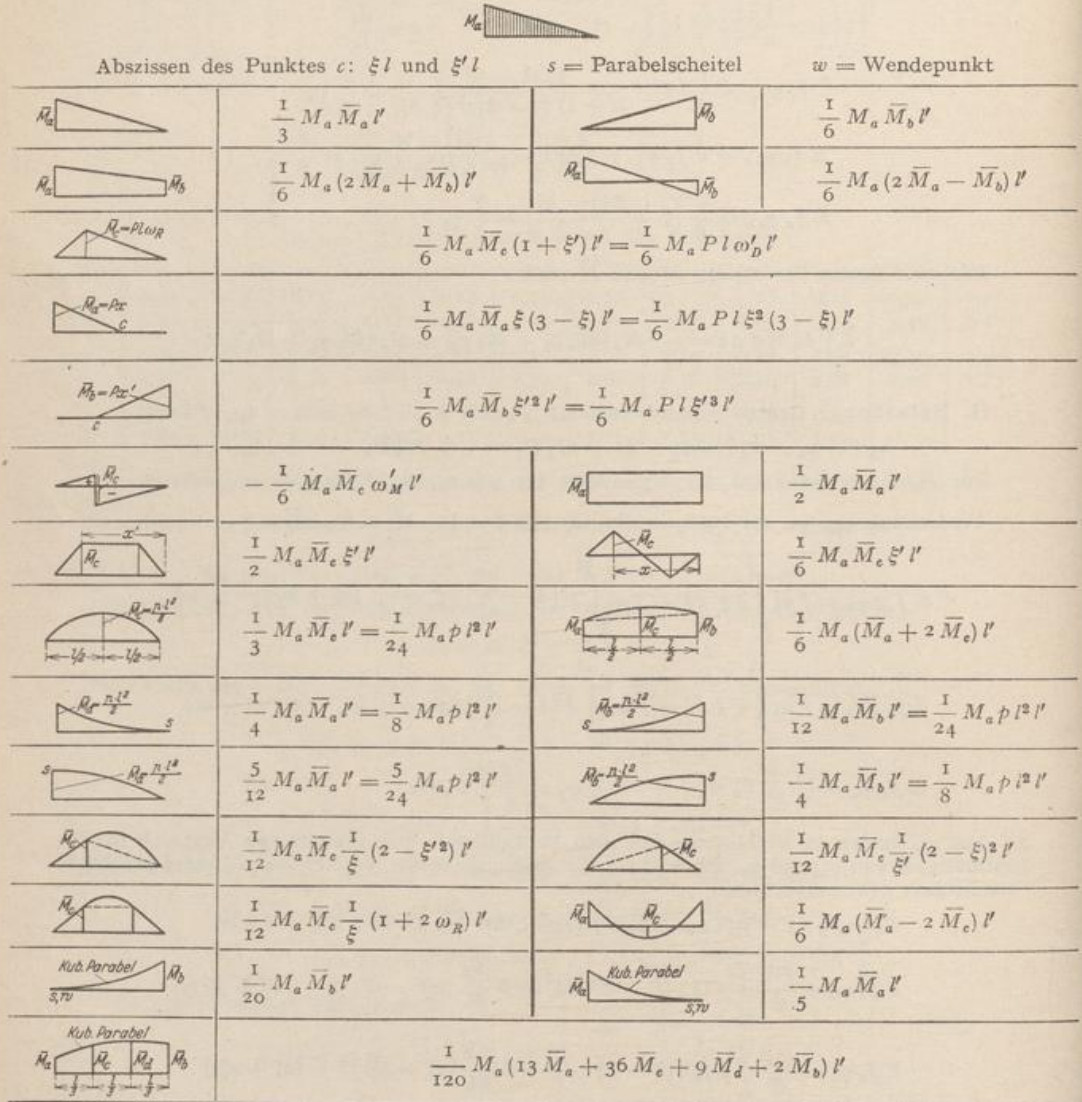 Mₐ
Abszissen des Punktes c: ξ l und ξ′ l s = Parabelscheitel w = Wendepunkt
M̄ₐ 1/3 Mₐ M̄ₐ l′ M̄_b 1/6 Mₐ M̄_b l′
M̄ₐ M̄_b 1/6 Mₐ (2 M̄ₐ + M̄_b) l′ M̄ₐ M̄_b 1/6 Mₐ (2 M̄ₐ − M̄_b) l′
M̄_c=Plω_R 1/6 Mₐ M̄_c (1 + ξ′) l′ = 1/6 Mₐ P l ω′_D l′
M̄ₐ=Px c 1/6 Mₐ M̄ₐ ξ (3 − ξ) l′ = 1/6 Mₐ P l ξ² (3 − ξ) l′
M̄_b=Px′ c 1/6 Mₐ M̄_b ξ′² l′ = 1/6 Mₐ P l ξ′³ l′
M̄_c − − 1/6 Mₐ M̄_c ω′_M l′ M̄ₐ 1/2 Mₐ M̄ₐ l′
x′ M̄_c 1/2 Mₐ M̄_c ξ′ l′ M̄_c x 1/6 Mₐ M̄_c ξ′ l′
M̄_c=p·l²/8 l/2 l/2 1/3 Mₐ M̄_c l′ = 1/24 Mₐ p l² l′ M̄ₐ M̄_c M̄_b l/2 l/2 1/6 Mₐ (M̄ₐ + 2 M̄_c) l′
M̄ₐ=p·l²/2 s 1/4 Mₐ M̄ₐ l′ = 1/8 Mₐ p l² l′ M̄_b=p·l²/2 s 1/12 Mₐ M̄_b l′ = 1/24 Mₐ p l² l′
s M̄ₐ=p·l²/2 5/12 Mₐ M̄ₐ l′ = 5/24 Mₐ p l² l′ M̄_b=p·l²/2 s 1/4 Mₐ M̄_b l′ = 1/8 Mₐ p l² l′
M̄_c 1/12 Mₐ M̄_c 1/ξ (2 − ξ′²) l′ M̄_c 1/12 Mₐ M̄_c 1/ξ′ (2 − ξ)² l′
M̄_c 1/12 Mₐ M̄_c 1/ξ (1 + 2 ω_R) l′ M̄ₐ M̄_c 1/6 Mₐ (M̄ₐ − 2 M̄_c) l′
Kub. Parabel M̄_b s,w 1/20 Mₐ M̄_b l′ M̄ₐ Kub. Parabel s,w 1/5 Mₐ M̄ₐ l′
Kub. Parabel M̄ₐ M̄_c M̄_d M̄_b l/3 l/3 l/3 1/120 Mₐ (13 M̄ₐ + 36 M̄_c + 9 M̄_d + 2 M̄_b) l′